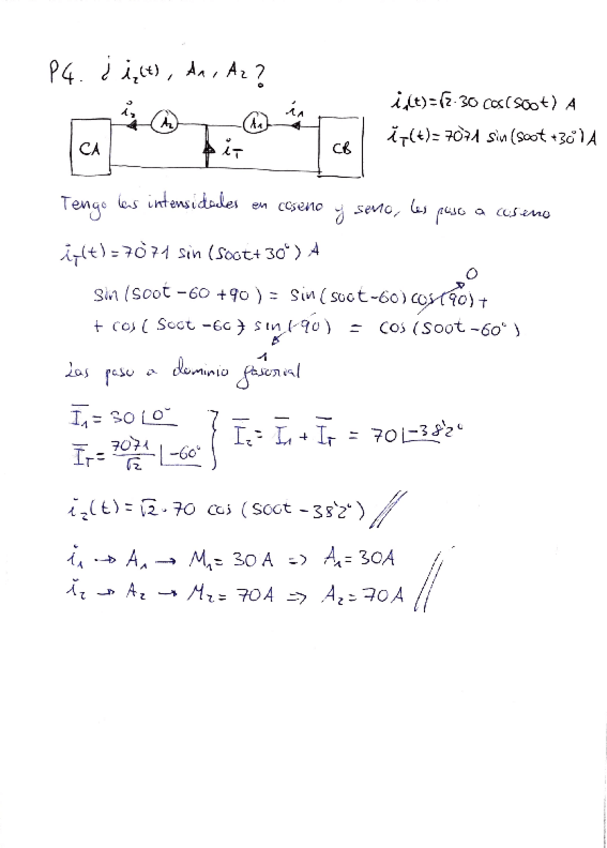 P4. ¿ i₂(t), A₁, A₂?
i₁(t)=√2·30 cos(500t) A
i_T(t)=70'71 sin(500t+30°) A
i₂ A₂ A₁ i₁
CA i_T CB
Tengo las intensidades en coseno y seno, las paso a coseno
i_T(t)=70'71 sin(500t+30°) A
sin(500t-60+90) = sin(500t-60)cos(90)+ 0
+ cos(500t-60) sin(90) = cos(500t-60°)
1
Las paso a dominio fasorial
I̅₁= 30 ∠0°
I̅_T= 70'71/√2 ∠-60° } I̅₂= I̅₁ + I̅_T = 70 ∠-38'2°
i₂(t)=√2·70 cos(500t-38'2°) //
i₁ → A₁ → M₁= 30A => A₁= 30A
i₂ → A₂ → M₂= 70A => A₂= 70A //